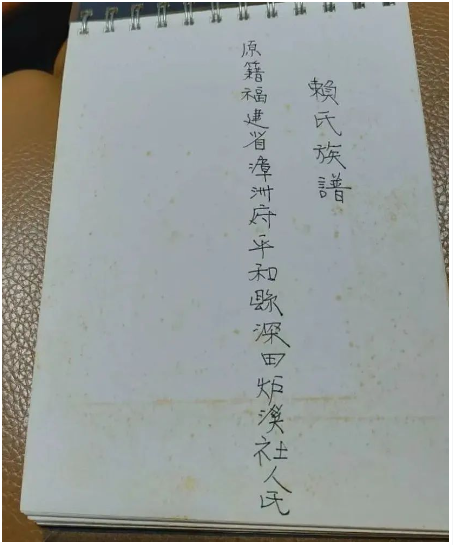 賴氏族譜
原籍福建省漳洲府平和縣深田炉漢社人民